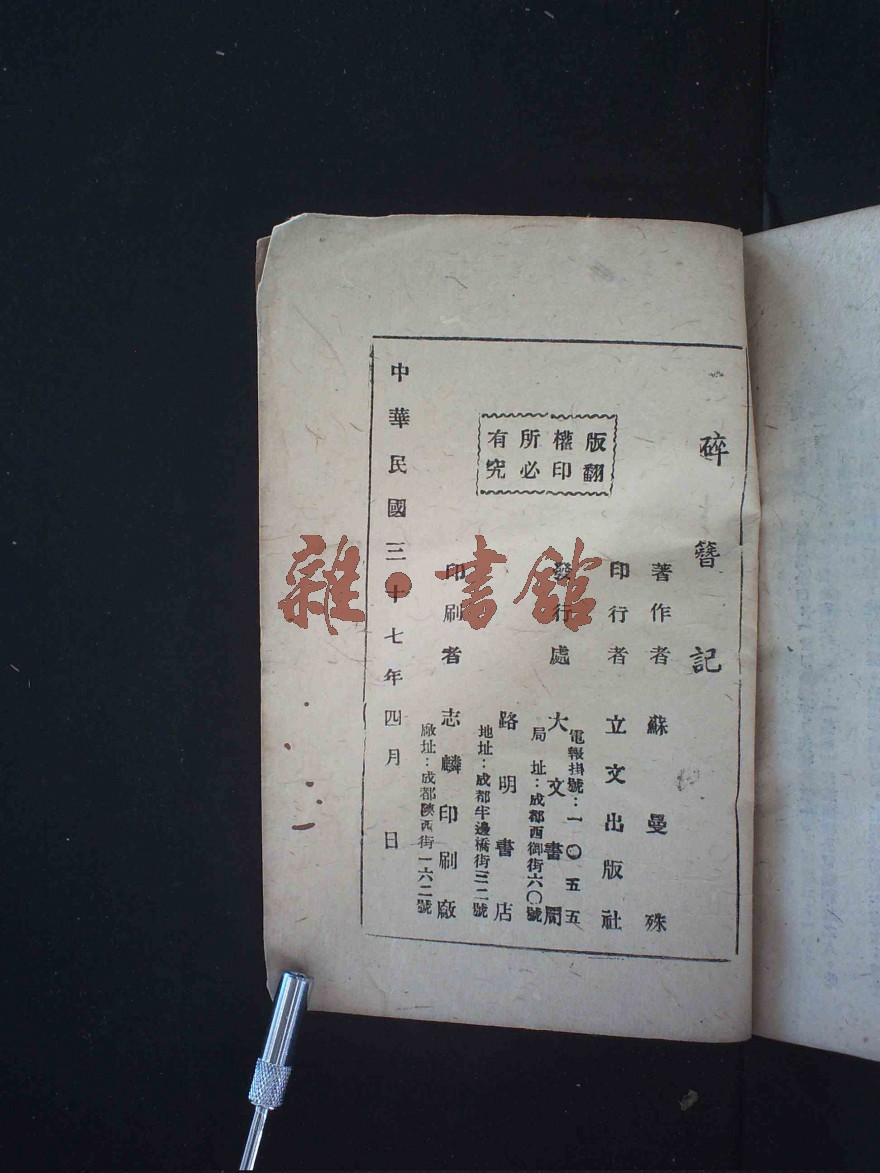 碎簪記
著作者 蘇曼殊
印行者 立文出版社
電報掛號：一〇五五
發行處 大文書局
局 址：成都西御街六〇號
路明書店
地址：成都半邊橋街三二號
印刷者 志麟印刷廠
廠址：成都陝西街一六二號
版權所有
翻印必究
中華民國三十七年四月 日
雜·書館